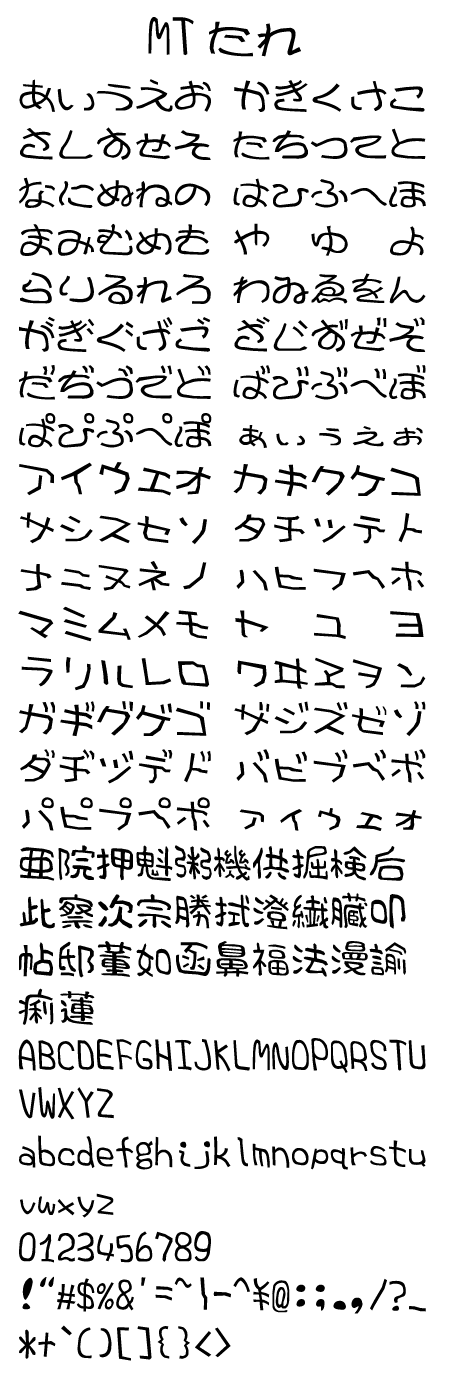 MTたれ
あいうえお かきくけこ
さしすせそ たちつてと
なにぬねの はひふへほ
まみむめも や ゆ よ
らりるれろ わゐゑをん
がぎぐげご ざじずぜぞ
だぢづでど ばびぶべぼ
ぱぴぷぺぽ ぁぃぅぇぉ
アイウエオ カキクケコ
サシスセソ タチツテト
ナニヌネノ ハヒフヘホ
マミムメモ ヤ ユ ヨ
ラリルレロ ワヰヱヲン
ガギグゲゴ ザジズゼゾ
ダヂヅデド バビブベボ
パピプペポ ァィゥェォ
亜院押魁粥機供掘検后
此察次宗勝拭澄繊臓叩
帖邸董如函鼻福法漫諭
痢蓮
ABCDEFGHIJKLMNOPQRSTU
VWXYZ
abcdefghijklmnopqrstu
vwxyz
0123456789
!"#$%&'=~|-^¥@:;.,/?_
*+`()[]{}<>